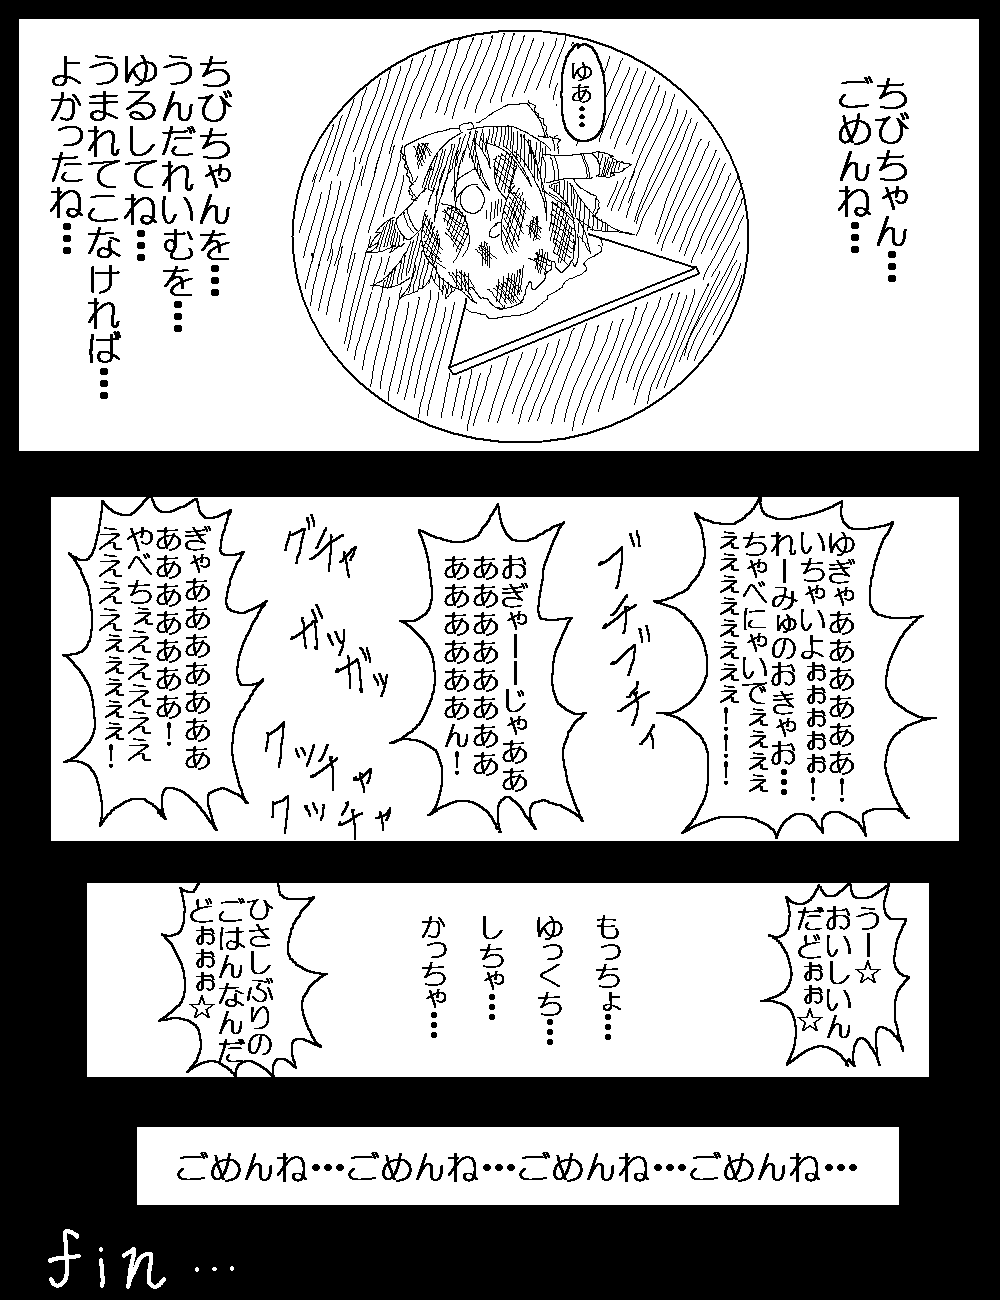 ちびちゃん…
ごめんね…
ゆあ…
ちびちゃんを…
うんだれいむを…
ゆるしてね…
うまれてこなければ…
よかったね…
ゆぎゃああああああ!
いちゃいよぉぉぉぉぉ!
れーみゅのおきゃお…
ちゃべにゃいでぇぇぇぇ
ぇぇぇぇぇぇぇぇ!!!
ブチブチィ
おぎゃーーじゃああ
ああああああああ
あああああああん!
グチャ
ガッ
ガッ
クッチャ
クッチャ
ぎゃあああああああ
あああああああ!
やべちぇぇぇぇぇぇ
ええええぇぇぇぇ!
うー☆
おいしいん
だどぉぉ☆
もっちょ…
ゆっくち…
しちゃ…
かっちゃ…
ひさしぶりの
ごはんなんだ
どぉぉぉ☆
ごめんね…ごめんね…ごめんね…ごめんね…
fin…